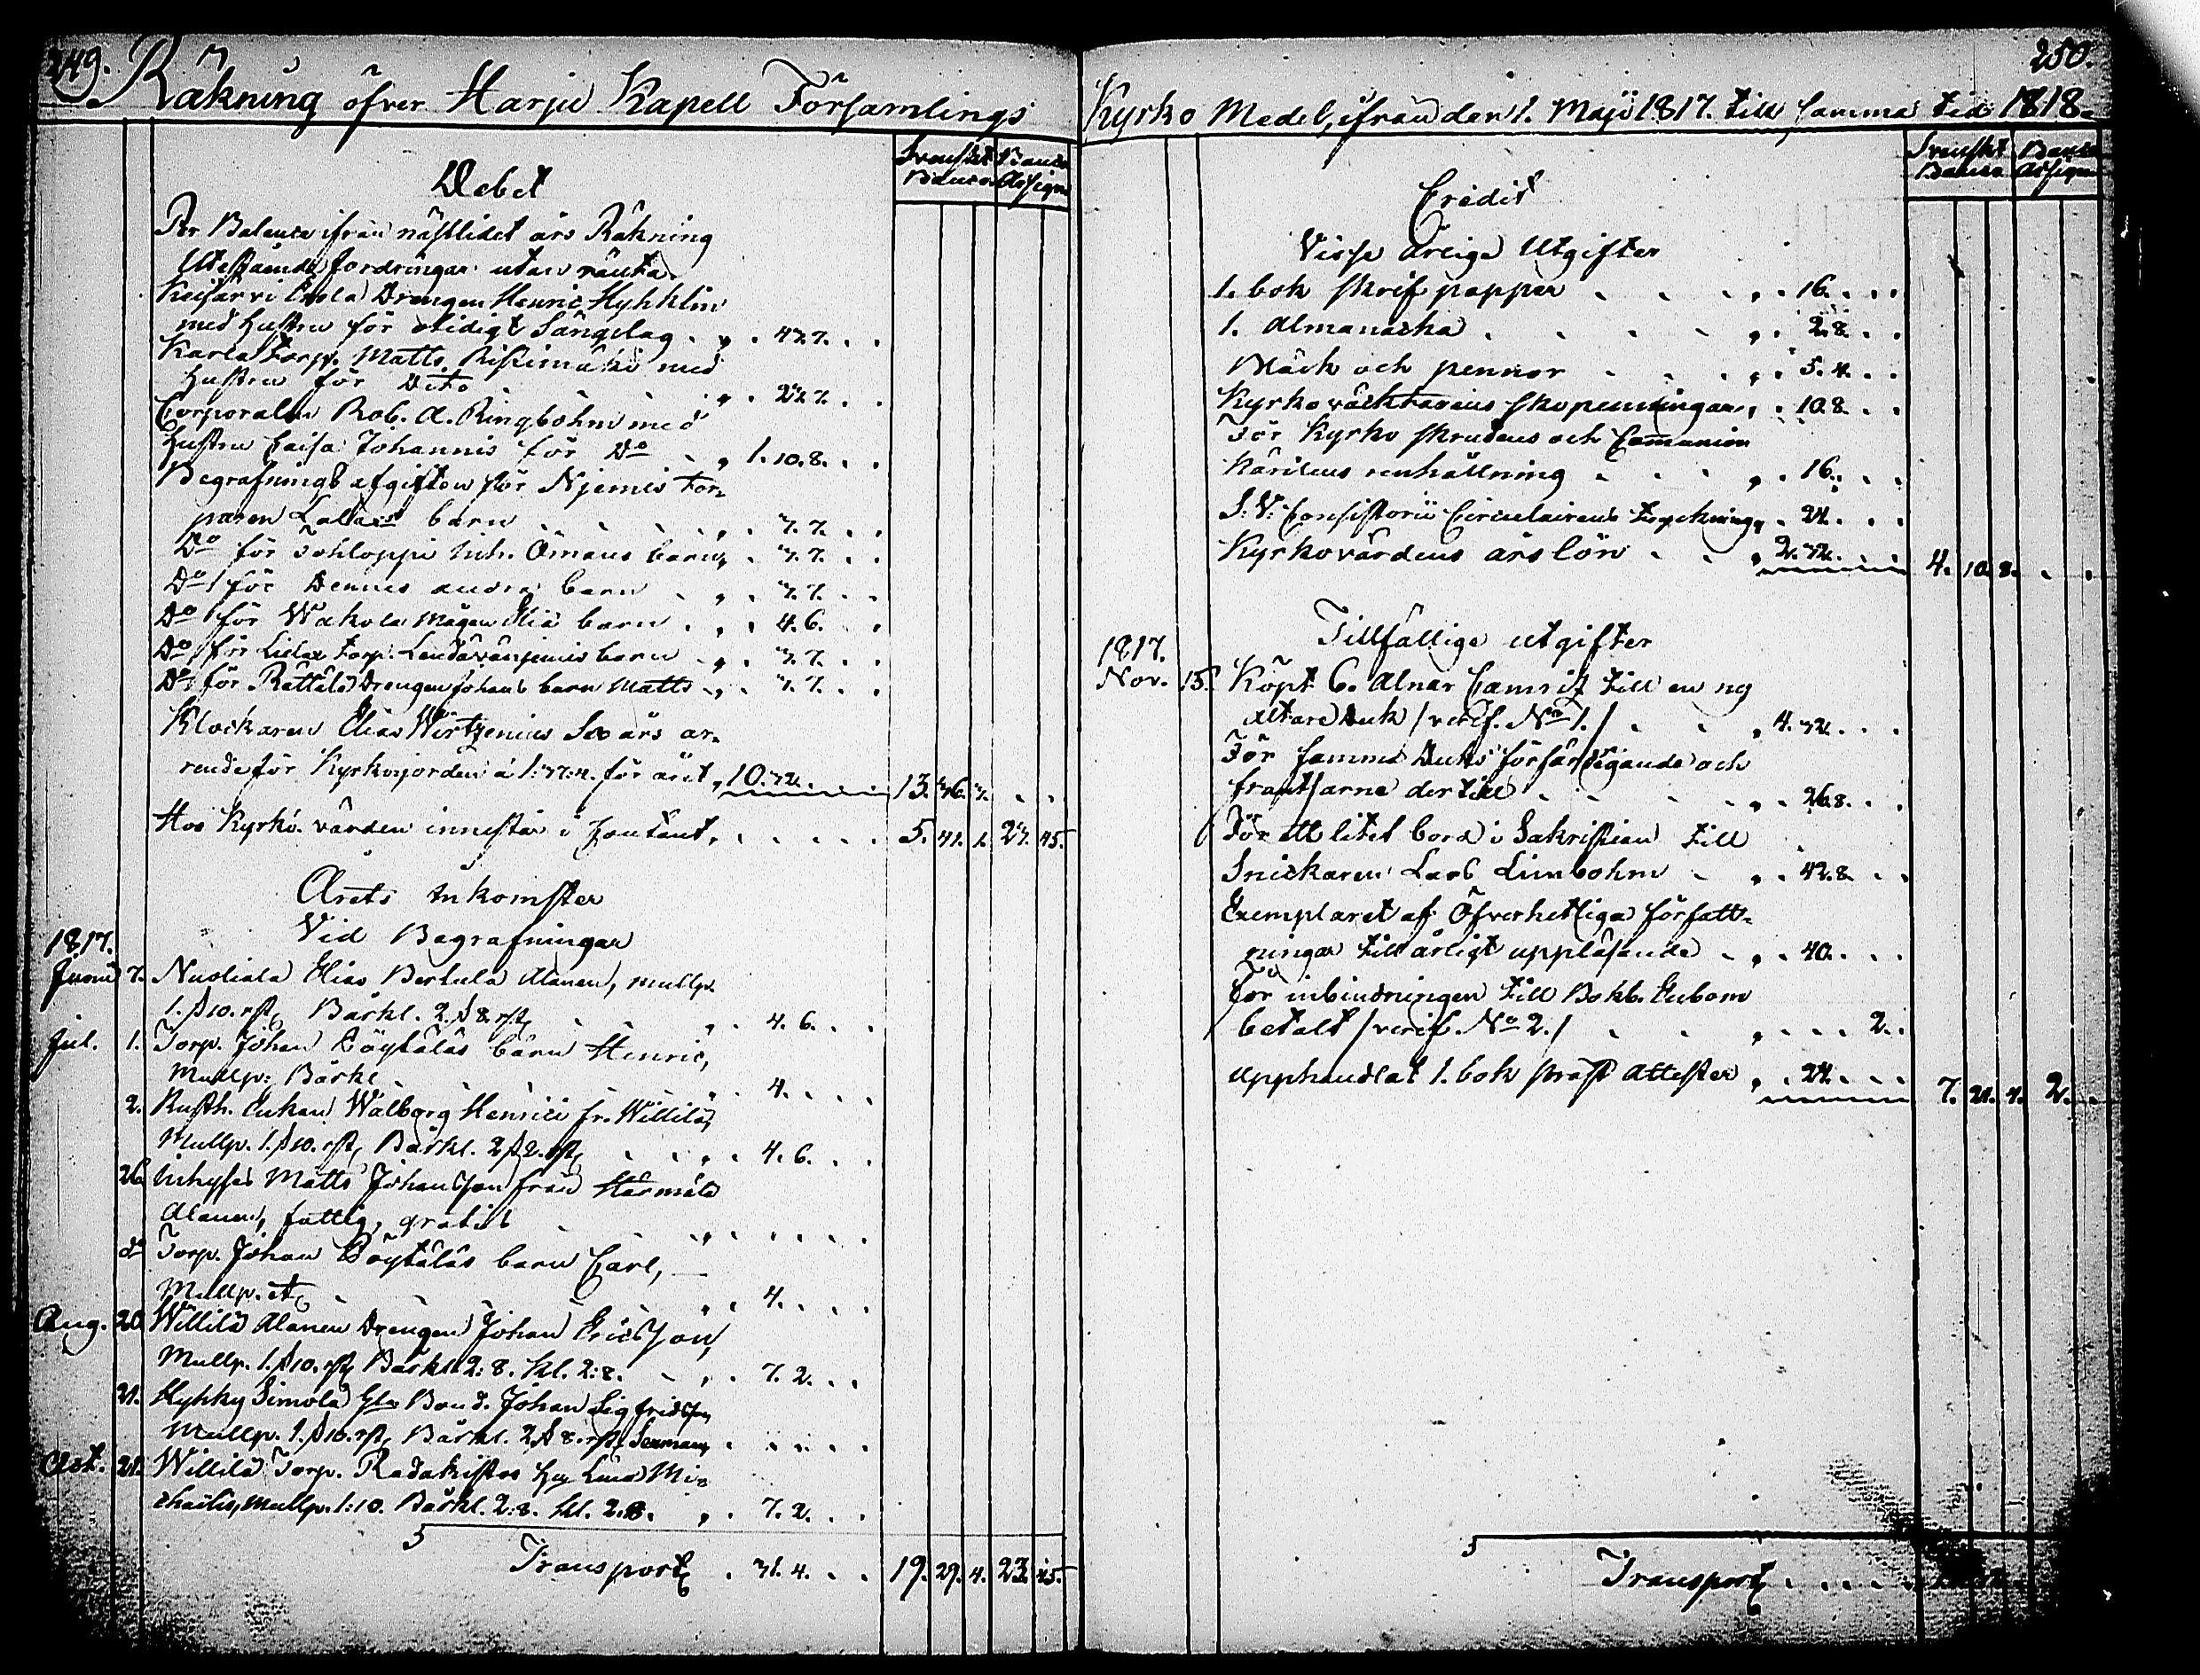 249.
Räkning öfver Harju Kapell Församlings
Debet
Svenskt Banco
Banco Assign
Per Balance ifrån nästlidet års Räkning
Utestående fordringar utan ränta
Drengen Henric Hyhklin
med hustru för otidigt Sängelag . „ . 43.7. . .
Karla Torp. Matts Ristimäki med
hustru för Dito . . „ . 23.7. . .
Corporalen Rob. A. Ringbohm med
hustru Caisa Johannis för Do . „ 1.10.8. . .
Begrafnings afgiften för Njemis Tor-
paren barn . . . „ . 7.7. . .
Do för Tohloppi Inh. Ömans barn „ . 7.7. . .
Do för Dennes andra barn . „ . 7.7. . .
Do för Wakola Mågen Eliæ barn . „ . 4.6. .
Do för Liela Torp. barn . „ . 7.7. . .
Do för Rättälä Drengen Johans barn Matts . „ . 7.7. . .
Klockaren Elias Wirtzenius Sex års ar-
rende för Kyrkojorden á 1:37:4. för året „ 10.32. . . 13. 36. 3. . .
Hos Kyrko-värden innestår i Contant, . . . . . 5. 41. 1. 23. 45.
Årets Inkomster
Vid Begrafningar
1817.
Junii 7. Nuoliala Elias Bertula Alanen, mullp.
1. s. 10. rst, Bårkl. 2. s. 8. rst, . . „ . 4. 6. . .
Jul. 1. Torp. Johan Böytäläs barn Henric,
Mullp: Bårkl. . . „ . 4. . . .
2. Rusth. Enkan Walborg Henrici fr. Willilä,
Mullp. 1. s. 10. rst, Bårkl. 2 s. 2. rst, . . „ . 4. 6. . .
26. Inhyses Matts Johansson från Härmälä
Alanen, fattig, gratis . . „ . . . . .
do Torp. Johan Böytäläs barn Carl,
Mullp. etc . . . „ . 4. . . .
Aug. 20. Willilä Alanen Drengen Johan Ericsson,
Mullp. 1. s. 10. rst, Bårkl. 2:8. kl. 2:8. . „ . 7. 2. . .
21. Hyhky Simola Gla Bond. Johan Sigfridsson,
Mullp. 1. s. 10. rst, Bårkl. 2 s. 8. rst, . . . . . .
Oct. 21. Willilä Torp. Hu Lisa Mi-
chaelis, Mullp. 1:10. Bårkl. 2:8. kl. 2.8. „ . 7. 2. . .
Transport . 31. 4. . . 19. 29. 4. 23. 45.
250.
Kyrko Medel, ifrån den 1. Maji 1817. till samma tid 1818.
Credit
Svenskt Banco
Banco Assign
Visse årlige Utgifter
1. bok skrif papper . . . „ . 16. . . .
1. Almanacka . . . . „ . 2.8. . .
Bläck och pennor . . . „ . 5.4. . .
Kyrkoväcktarens skopenningar „ . 10.8. . .
För Kyrko skrudens och Communion
kärilens renhållning . . . „ . 16. . . .
S: V: Consistorii Circulairens tryckning „ . 24. . . .
Kyrkovärdens årslön . . „ 2.32. . . 4. 10. 8. . .
Tillfällige utgifter
1817.
Nov. 15. Köpt 6. Alnar Camrik till en ny
Altare Duk /verif. No 1./ . . . „ 4.32. . . .
För samma Duks förfärdigande och
frantsarne dertill . . . . „ . 26.8. . .
För ett litet bord i Sakristian till
Snickaren Lars Limbohm . „ . 42.8. . .
Exemplaret af Öfverhetliga författ-
ningar till årligt uppläsande . „ . 40. . . .
För inbindningen till Bokb. Enbom
betalt /verif. No 2./ . . „ . . . 2. .
Upphandlat 1. bok Präst Attester „ . 24. . . . 7. 21. 4. 2. .
Transport . . . . .